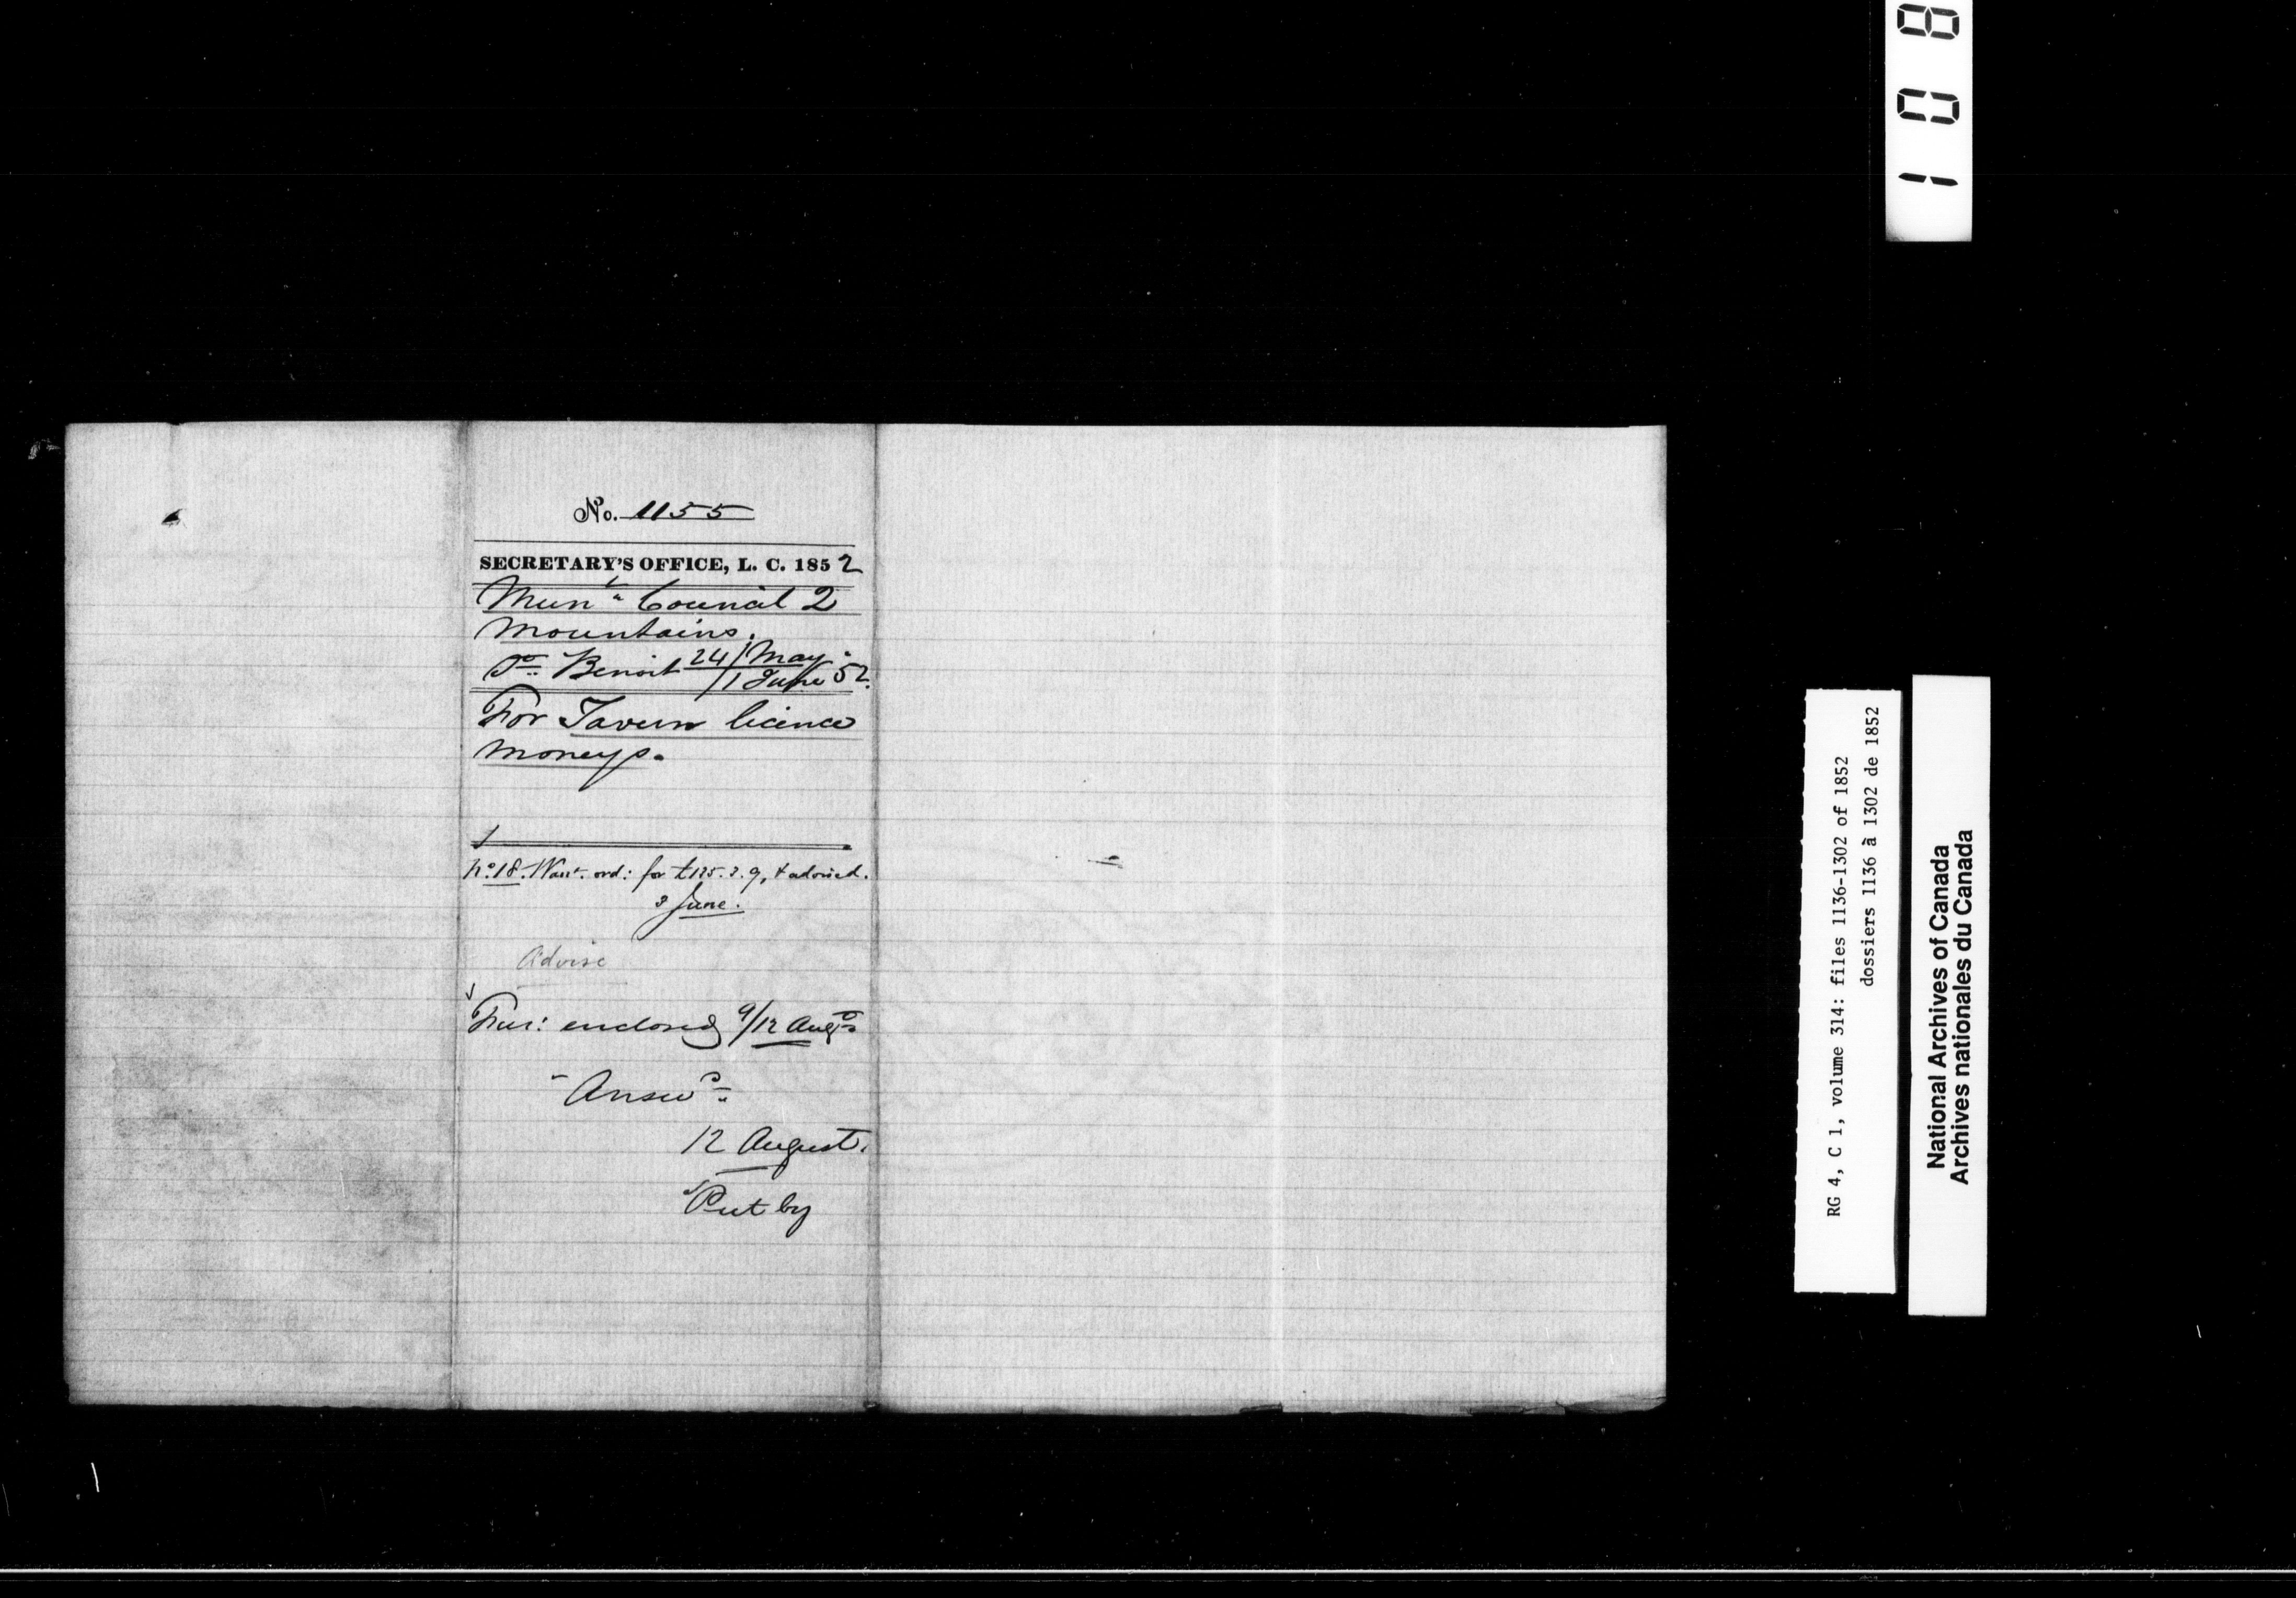 No. 1155
SECRETARY'S OFFICE, L. C. 1852
Mun.l Council 2
Mountains.
St. Benoit 24/May
1 June 52.
For Tavern licence
moneys.
No. 18. Warrt. ord: for £125. 2. 9, & advised.
3 June.
Advise
Fur: enclosed 9/12 Augt
Answd.
12 August.
Put by
108
RG 4, C 1, volume 314: files 1136-1302 of 1852
dossiers 1136 à 1302 de 1852
National Archives of Canada
Archives nationales du Canada